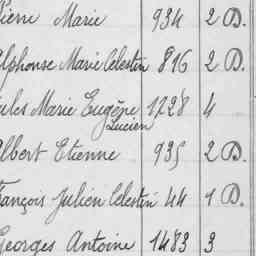 Pierre Marie 934 2 D.
Alphonse Marie Célestin 816 2 D.
Jules Marie Eugène 1728 4
Lucien
Albert Etienne 935 2 D.
François Julien Célestin 44 1 D.
Georges Antoine 1483 3